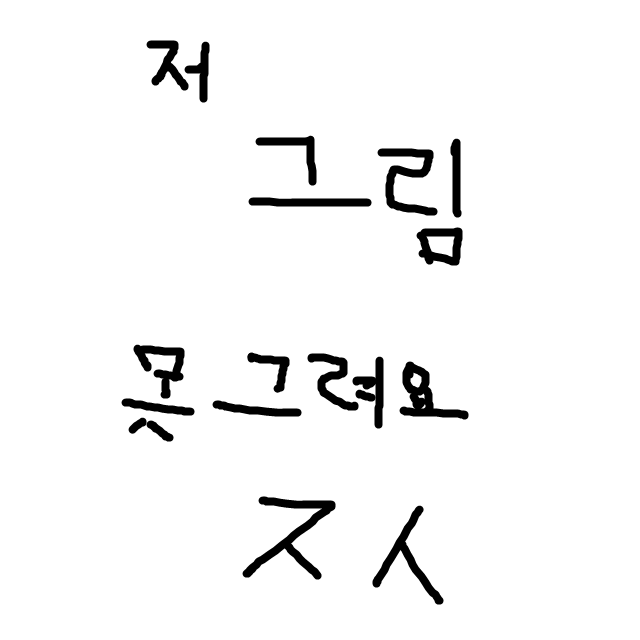 저
그림
못그려요
ㅈㅅ